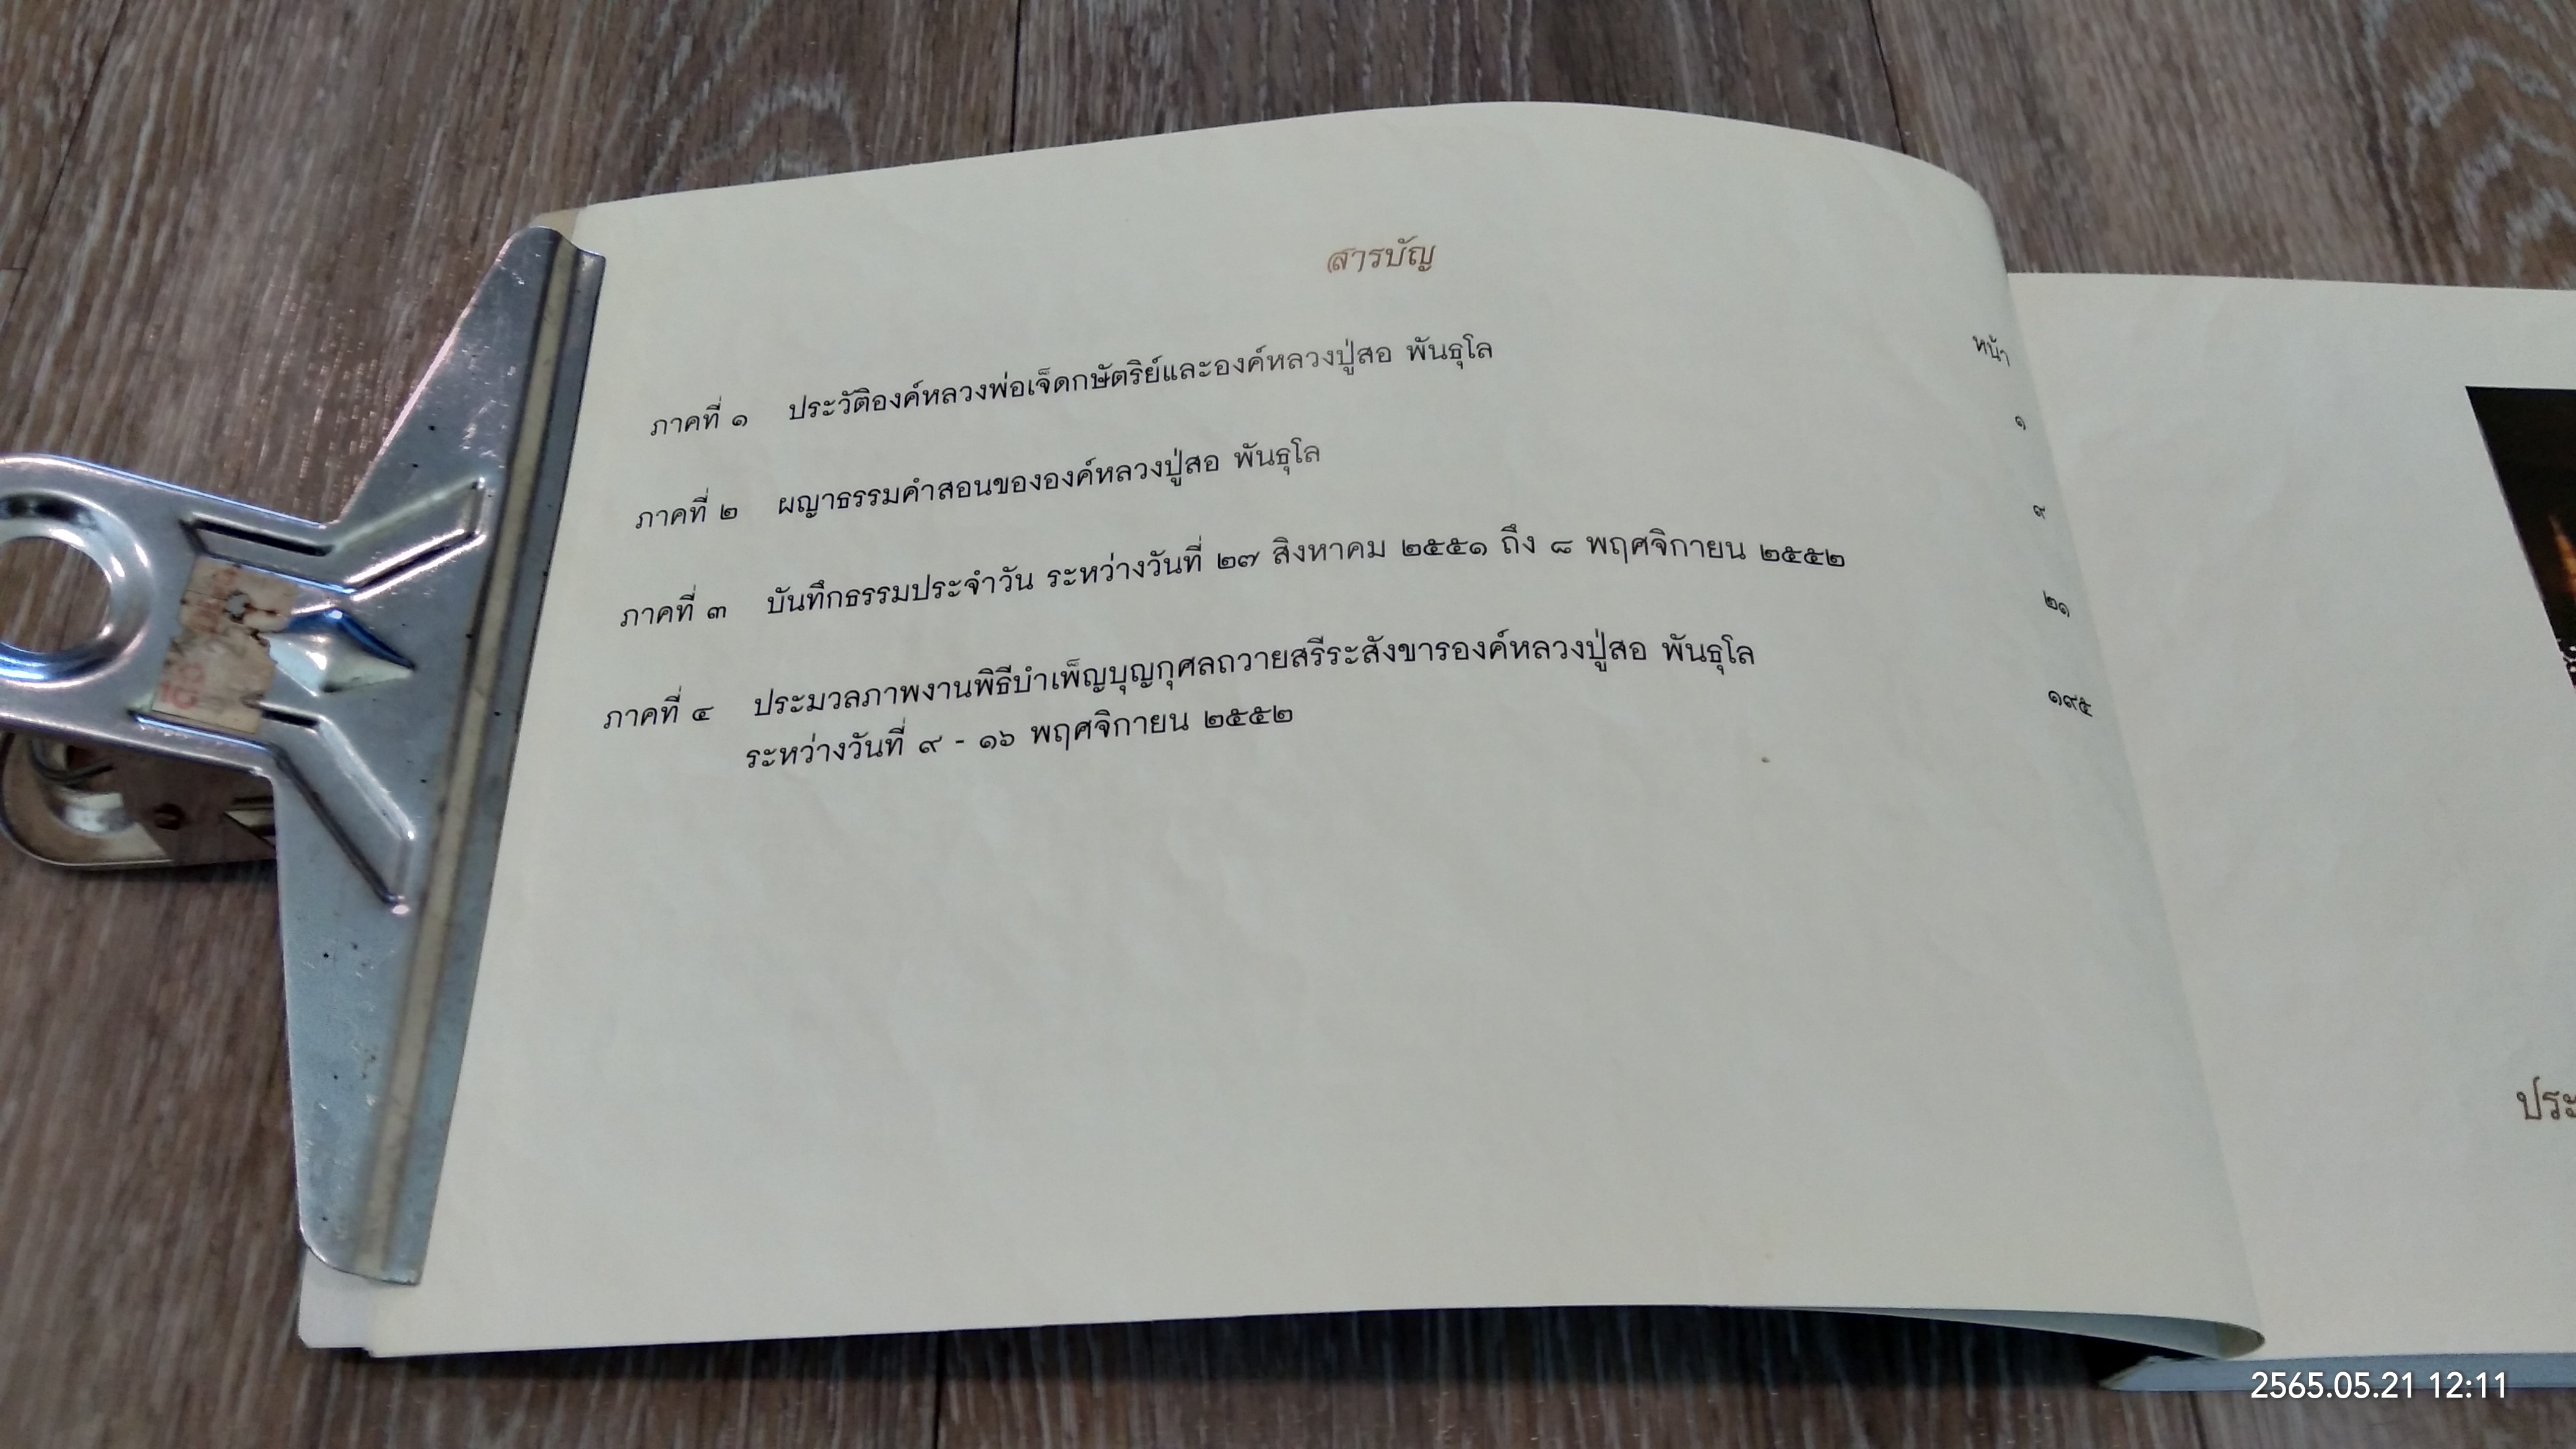 สารบัญ
หน้า
ภาคที่ ๑ ประวัติองค์หลวงพ่อเจ็ดกษัตริย์และองค์หลวงปู่สอ พันธุโล ๑
ภาคที่ ๒ ผญาธรรมคำสอนขององค์หลวงปู่สอ พันธุโล ๙
ภาคที่ ๓ บันทึกธรรมประจำวัน ระหว่างวันที่ ๒๗ สิงหาคม ๒๕๕๑ ถึง ๘ พฤศจิกายน ๒๕๕๒ ๒๑
ภาคที่ ๔ ประมวลภาพงานพิธีบำเพ็ญบุญกุศลถวายสรีระสังขารองค์หลวงปู่สอ พันธุโล ๑๙๕
ระหว่างวันที่ ๙ - ๑๖ พฤศจิกายน ๒๕๕๒
ประ
2565.05.21 12:11